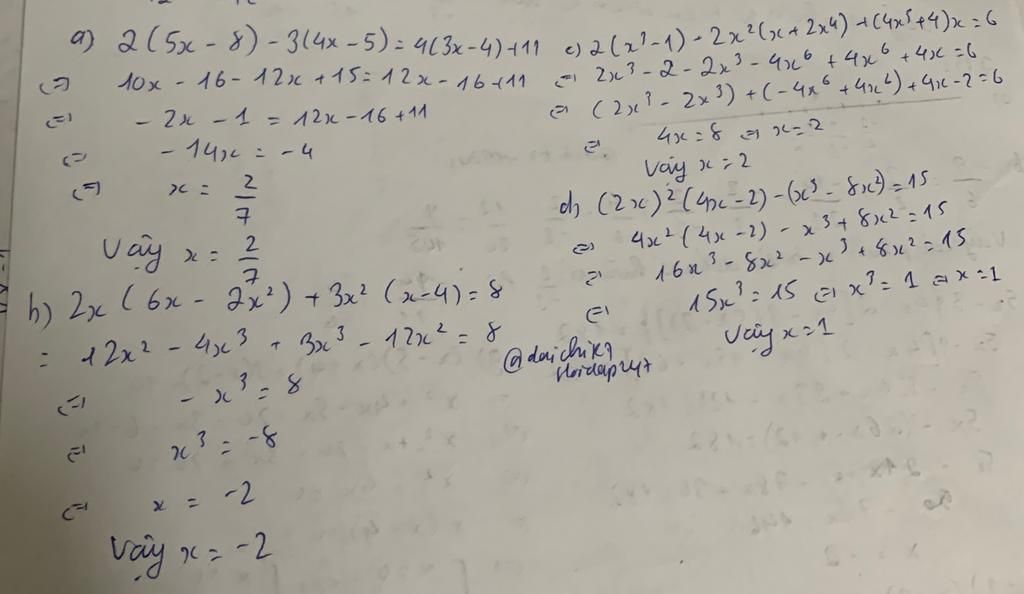 a) 2(5x - 8) - 3(4x - 5) = 4(3x - 4) + 11
⇔ 10x - 16 - 12x + 15 = 12x - 16 + 11
⇔ - 2x - 1 = 12x - 16 + 11
⇔ - 14x = - 4
⇔ x = 2/7
Vậy x = 2/7
b) 2x (6x - 2x²) + 3x² (x - 4) = 8
= 12x² - 4x³ + 3x³ - 12x² = 8
⇔ - x³ = 8
⇔ x³ = -8
⇔ x = -2
Vậy x = -2
c) 2(x³ - 1) - 2x²(x + 2x⁴) + (4x⁵ + 4)x = 6
⇔ 2x³ - 2 - 2x³ - 4x⁶ + 4x⁶ + 4x = 6
⇔ (2x³ - 2x³) + (-4x⁶ + 4x⁶) + 4x - 2 = 6
⇔ 4x = 8 ⇔ x = 2
Vậy x = 2
d) (2x)² (4x - 2) - (x³ - 8x²) = 15
⇔ 4x² (4x - 2) - x³ + 8x² = 15
⇔ 16x³ - 8x² - x³ + 8x² = 15
⇔ 15x³ = 15 ⇔ x³ = 1 ⇔ x = 1
Vậy x = 1
@daichik7
Hoidap247